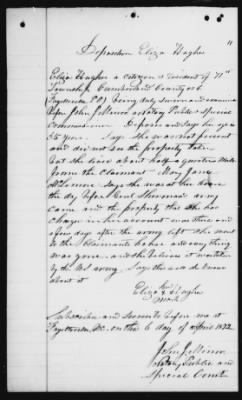 Deposition Eliza Hughes
Eliza Hughes a citizen & resident of 71st
Township Cumberland County NC
(Fayetteville P.O) being duly sworn and examined
Before John J. Minor a Notary Public & Special
Commissioner. Deposes and Says her age is
Years. Says she was not present
and did not see the property taken
but she lives about half a quarter Mile
from the Claimant Mary Jane
McLemore. Says she was at her house
the day before Genl Sherman army
came and the property that she has
charge in her account was there and
a few days after the army left she went
to the Claimants house and everything
was gone and she believes it was taken
by the US army. Says this is all she knows
about it
Eliza X Hughes
her
mark
Subscribed and sworn to before me at
Fayetteville, NC. on this 6 day of April 1872
John J. Minor
Notary Public and
Special Comr